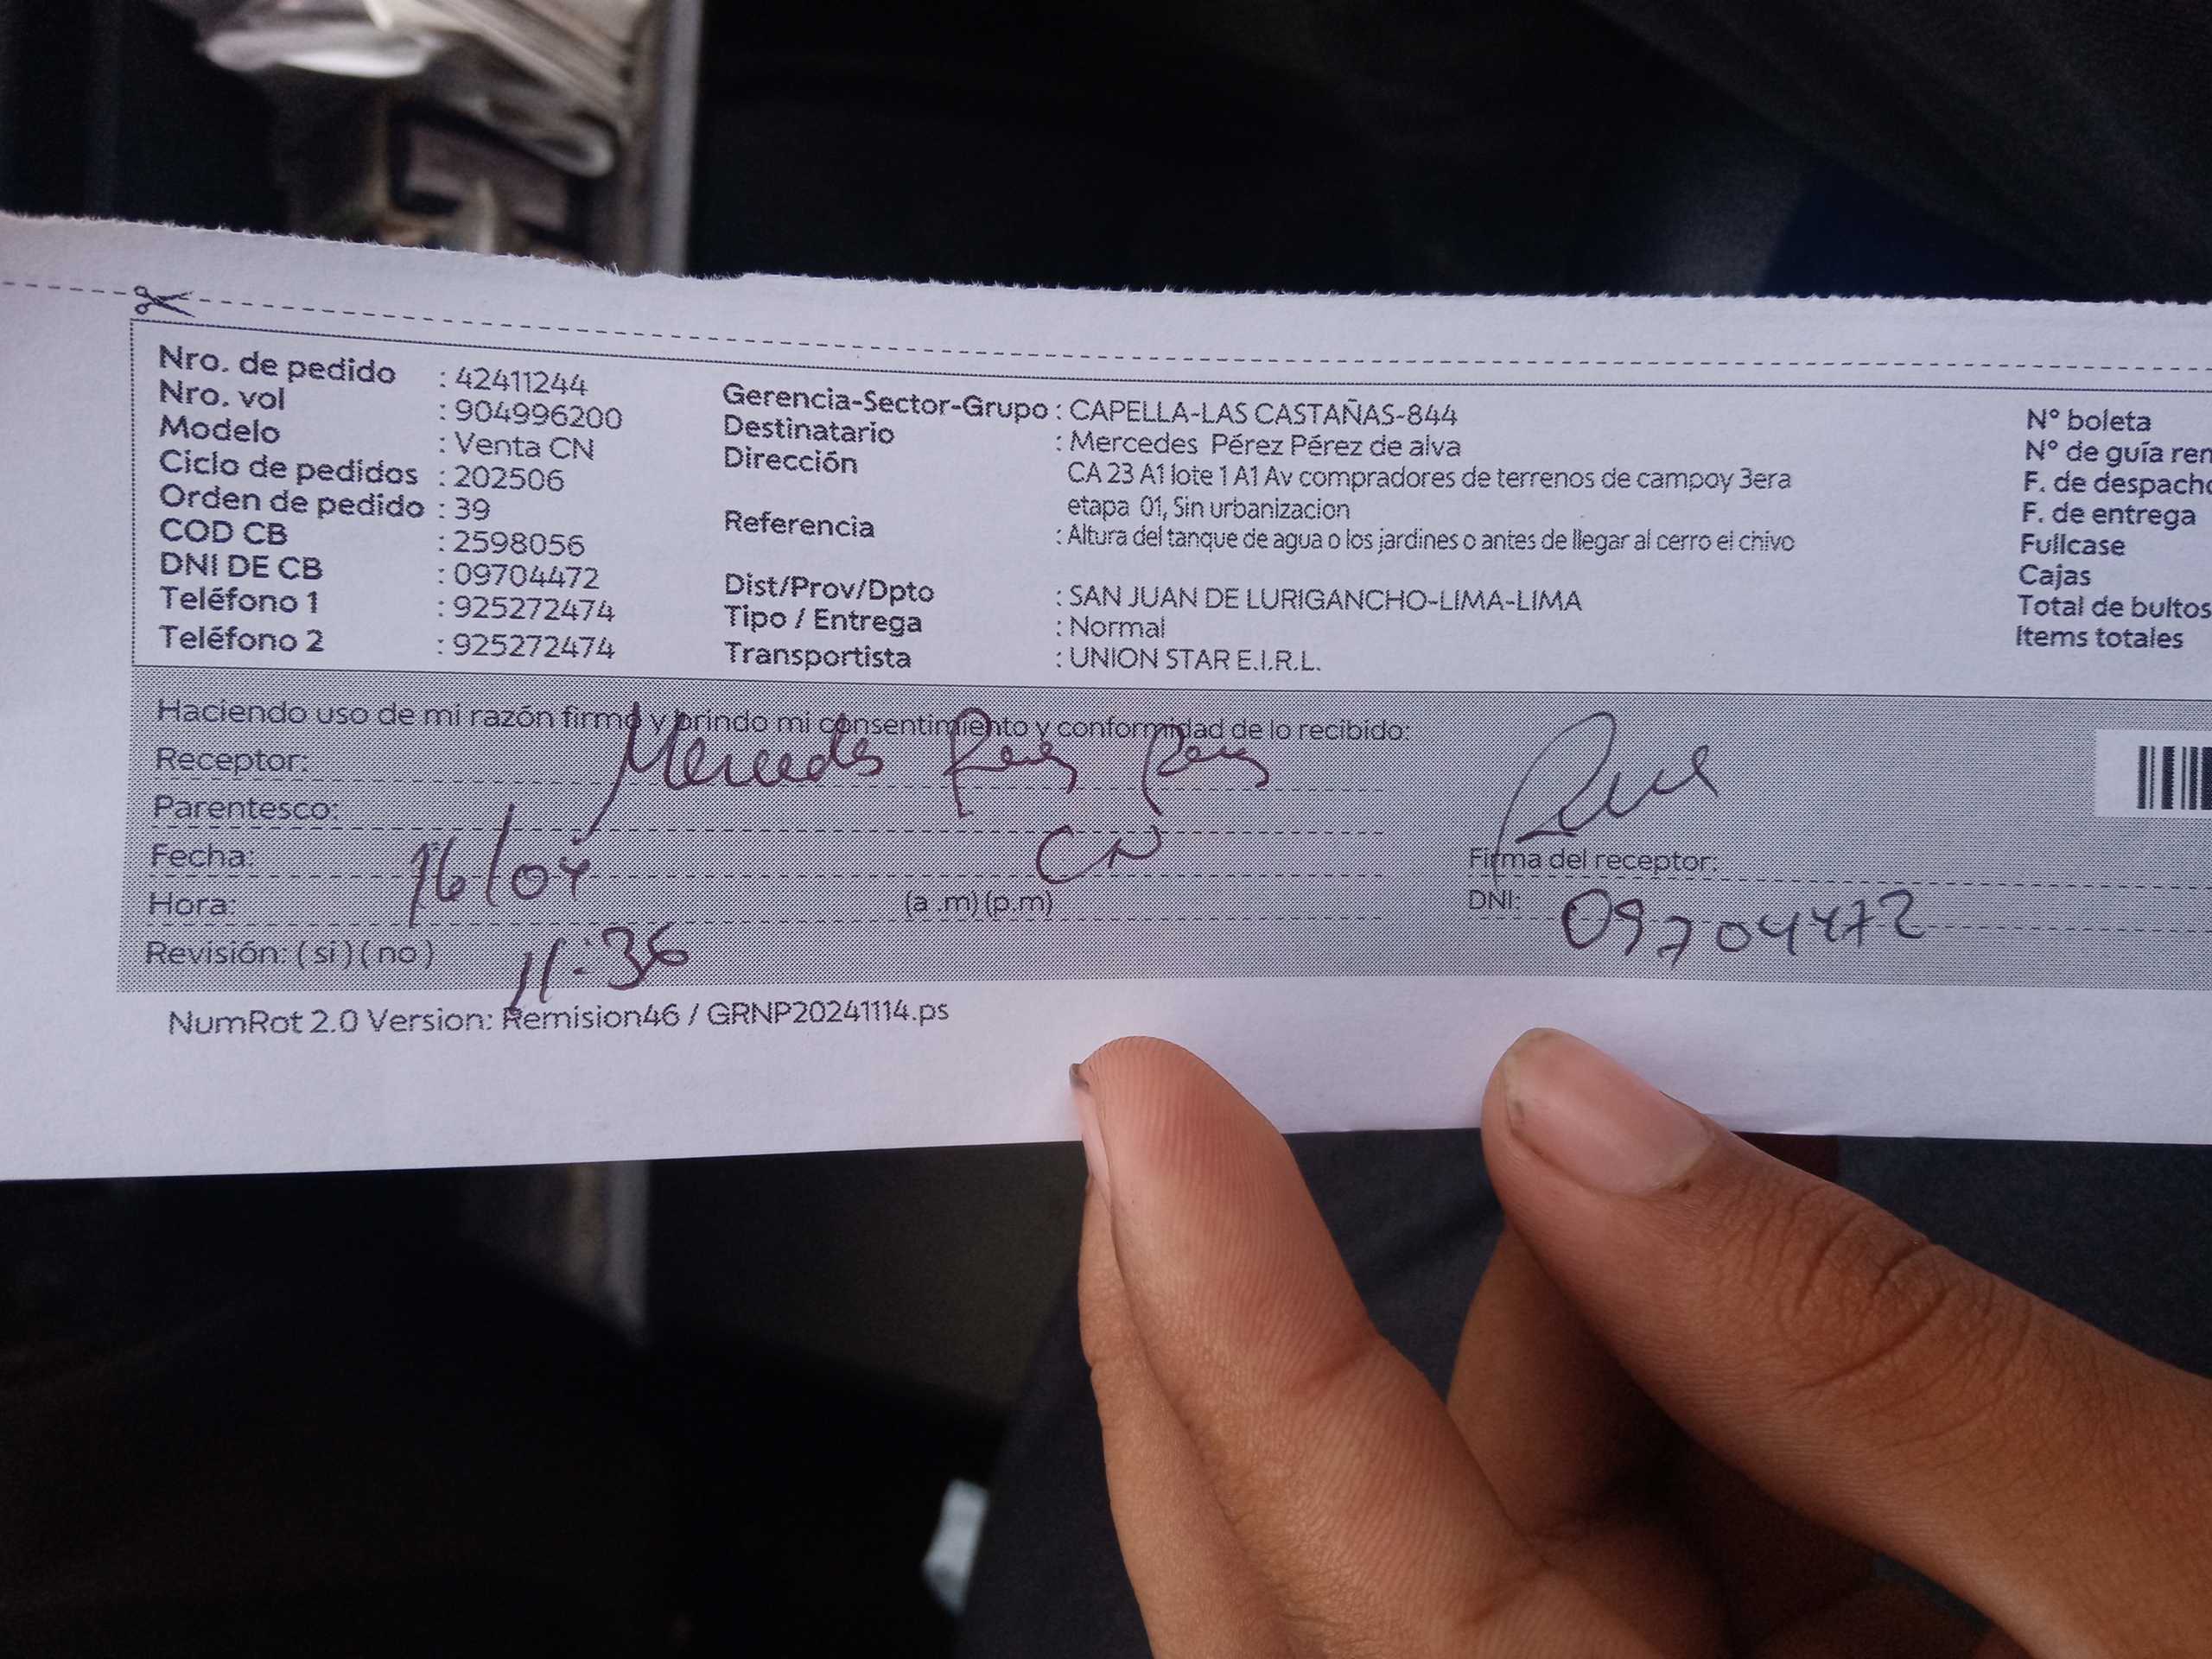 Nro. de pedido : 42411244
Nro. vol : 904996200
Modelo : Venta CN
Ciclo de pedidos : 202506
Orden de pedido : 39
COD CB : 2598056
DNI DE CB : 09704472
Teléfono 1 : 925272474
Teléfono 2 : 925272474
Gerencia-Sector-Grupo : CAPELLA-LAS CASTAÑAS-844
Destinatario : Mercedes Pérez Pérez de alva
Dirección CA 23 A1 lote 1 A1 Av compradores de terrenos de campoy 3era
etapa 01, Sin urbanizacion
Referencia : Altura del tanque de agua o los jardines o antes de llegar al cerro el chivo
Dist/Prov/Dpto : SAN JUAN DE LURIGANCHO-LIMA-LIMA
Tipo / Entrega : Normal
Transportista : UNION STAR E.I.R.L.
N° boleta
N° de guía rem
F. de despacho
F. de entrega
Fullcase
Cajas
Total de bultos
Items totales
Haciendo uso de mi razón firmo y brindo mi consentimiento y conformidad de lo recibido:
Receptor: Mercedes
Parentesco: CN
Fecha: 16/04
Hora: (a .m) (p.m) 11:36
Revisión: ( si ) ( no )
Firma del receptor:
DNI: 09704472
NumRot 2.0 Version: Remision46 / GRNP20241114.ps